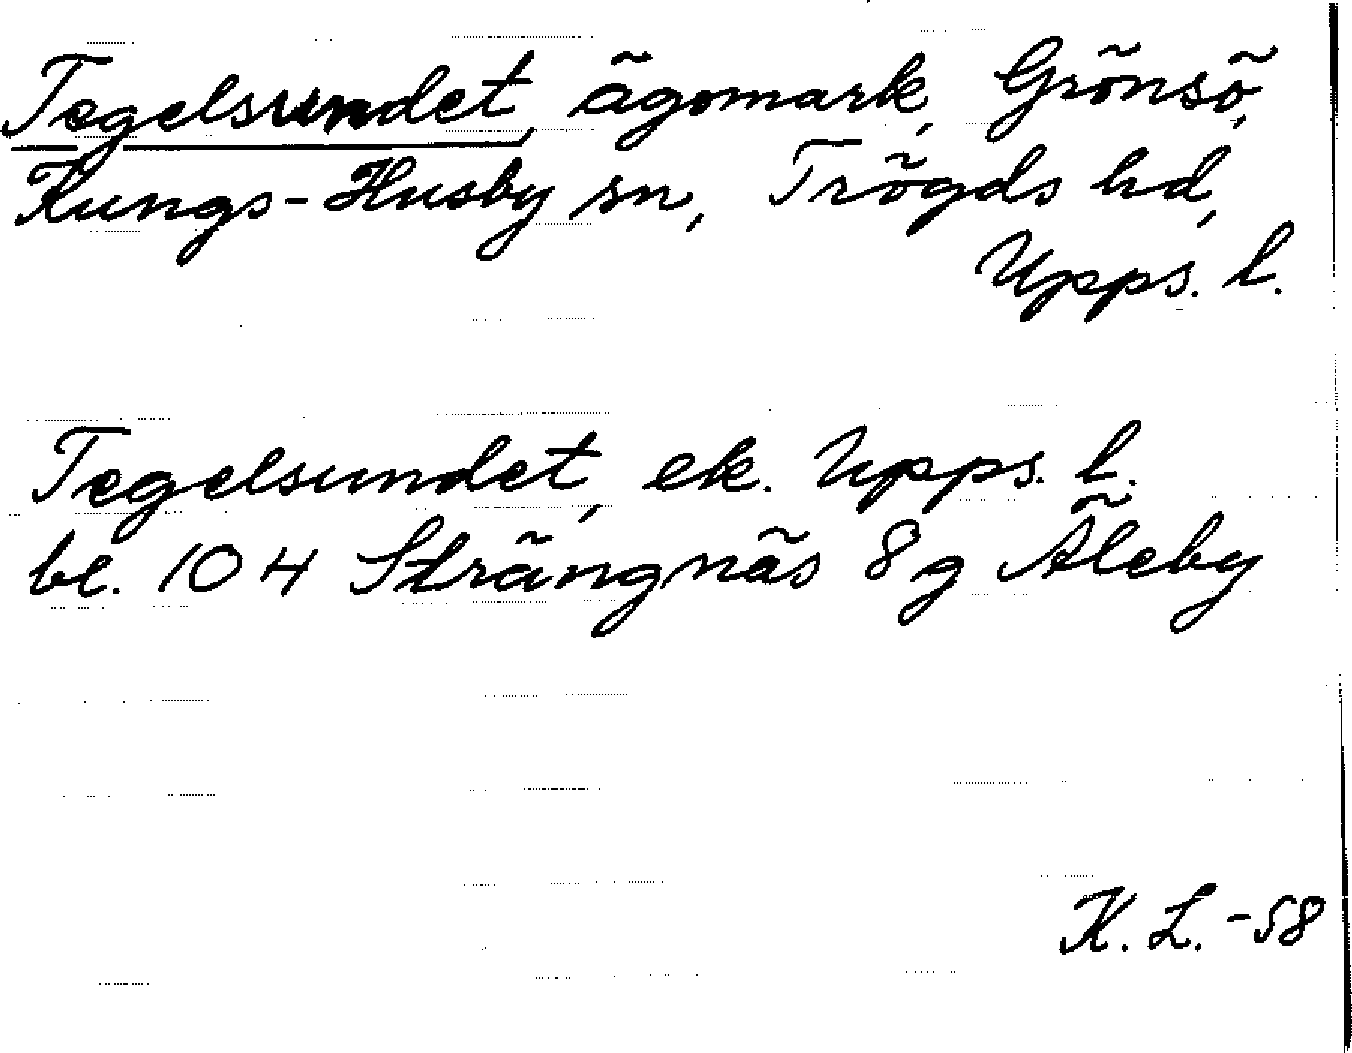 Tegelsundet, ägomark, Grönsö,
Kungs-Husby sn, Trögds hd,
Upps. l.
Tegelsundet, ek. Upps. l.
bl. 104 Strängnäs 8g Äleby
K. L. -58